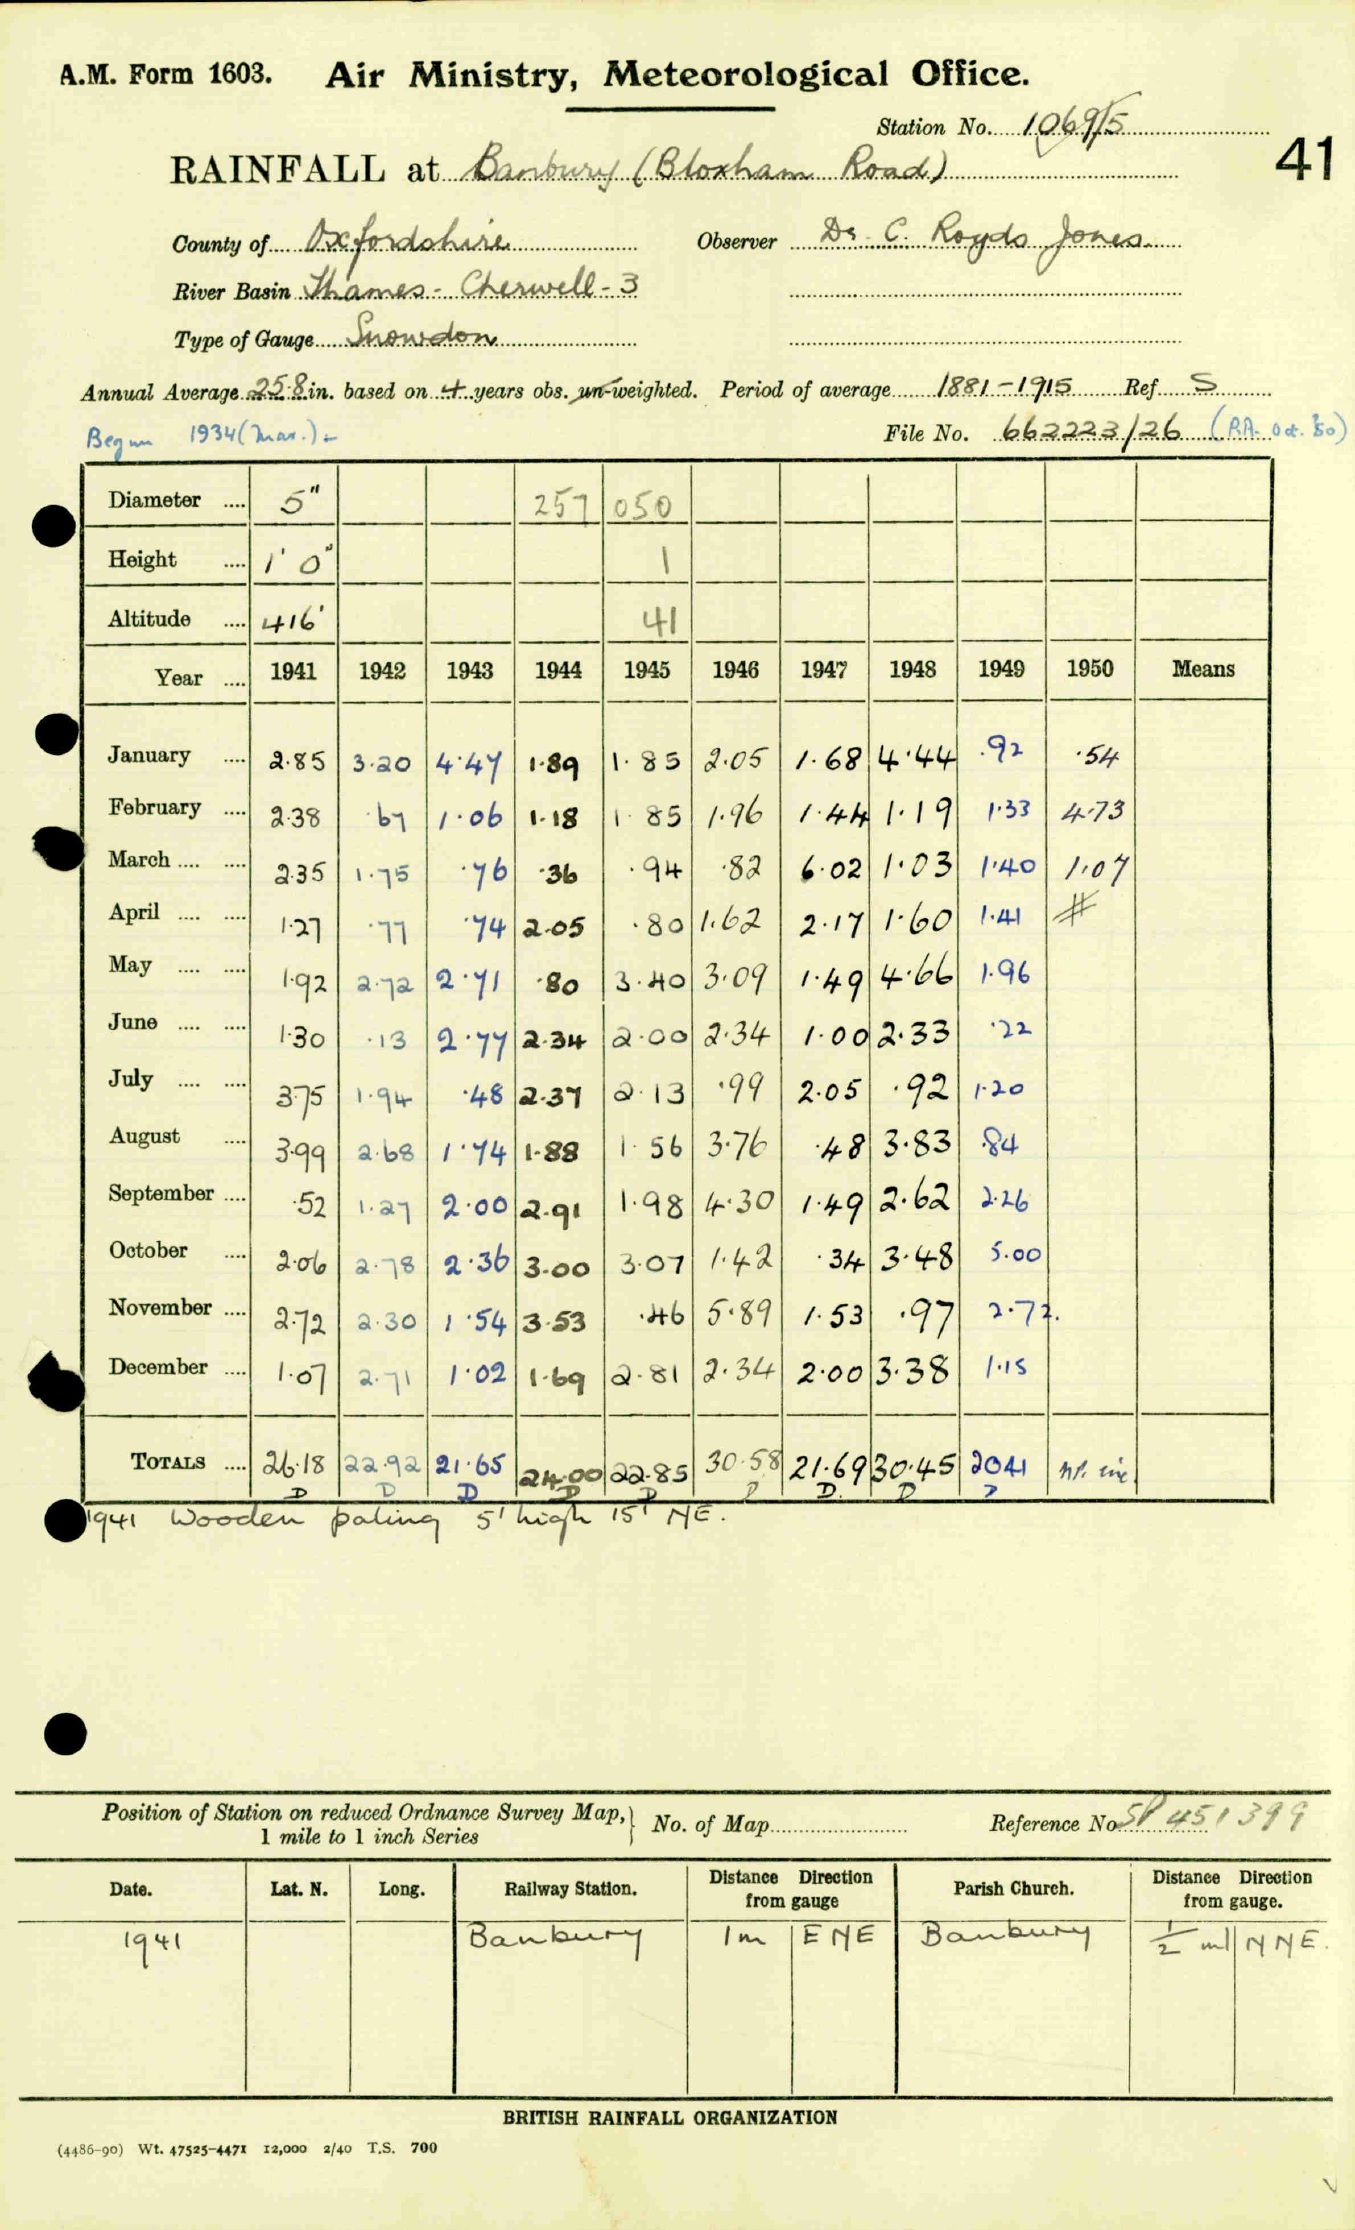 A.M. Form 1603. Air Ministry, Meteorological Office.
Station No. 1069/5
41
RAINFALL at Banbury (Bloxham Road)
County of Oxfordshire Observer Dr. C. Royds Jones
River Basin Thames - Cherwell - 3
Type of Gauge Snowdon
Annual Average 25.8 in. based on 4 years obs. un-weighted. Period of average 1881-1915 Ref S
Begun 1934 (Mar.) - File No. 662223/26 (RA. Oct. 50)
Diameter .... 5" 257 050
Height .... 1' 0" 1
Altitude .... 416' 41
Year .... 1941 1942 1943 1944 1945 1946 1947 1948 1949 1950 Means
January .... 2.85 3.20 4.47 1.89 1.85 2.05 1.68 4.44 .92 .54
February .... 2.38 .67 1.06 1.18 1.85 1.96 1.44 1.19 1.33 4.73
March .... .... 2.35 1.75 .76 .36 .94 .82 6.02 1.03 1.40 1.07
April .... .... 1.27 .77 .74 2.05 .80 1.62 2.17 1.60 1.41 #
May .... .... 1.92 2.72 2.71 .80 3.40 3.09 1.49 4.66 1.96
June .... .... 1.30 .13 2.77 2.34 2.00 2.34 1.00 2.33 .22
July .... .... 3.75 1.94 .48 2.37 2.13 .99 2.05 .92 1.20
August .... 3.99 2.68 1.74 1.88 1.56 3.76 .48 3.83 .84
September .... .52 1.27 2.00 2.91 1.98 4.30 1.49 2.62 2.26
October .... 2.06 2.78 2.36 3.00 3.07 1.42 .34 3.48 5.00
November .... 2.72 2.30 1.54 3.53 .46 5.89 1.53 .97 2.72.
December .... 1.07 2.71 1.02 1.69 2.81 2.34 2.00 3.38 1.15
TOTALS .... 26.18 22.92 21.65 24.00 22.85 30.58 21.69 30.45 20.41
D D D D D D D. D D
1941 Wooden paling 5' high 15' NE.
Position of Station on reduced Ordnance Survey Map, 1 mile to 1 inch Series } No. of Map Reference No. SP 451399
Date. Lat. N. Long. Railway Station. Distance Direction from gauge Parish Church. Distance Direction from gauge.
1941 Banbury 1m ENE Banbury 1/2 ml NNE.
BRITISH RAINFALL ORGANIZATION
(4486-90) Wt. 47525-4471 12,000 2/40 T.S. 700